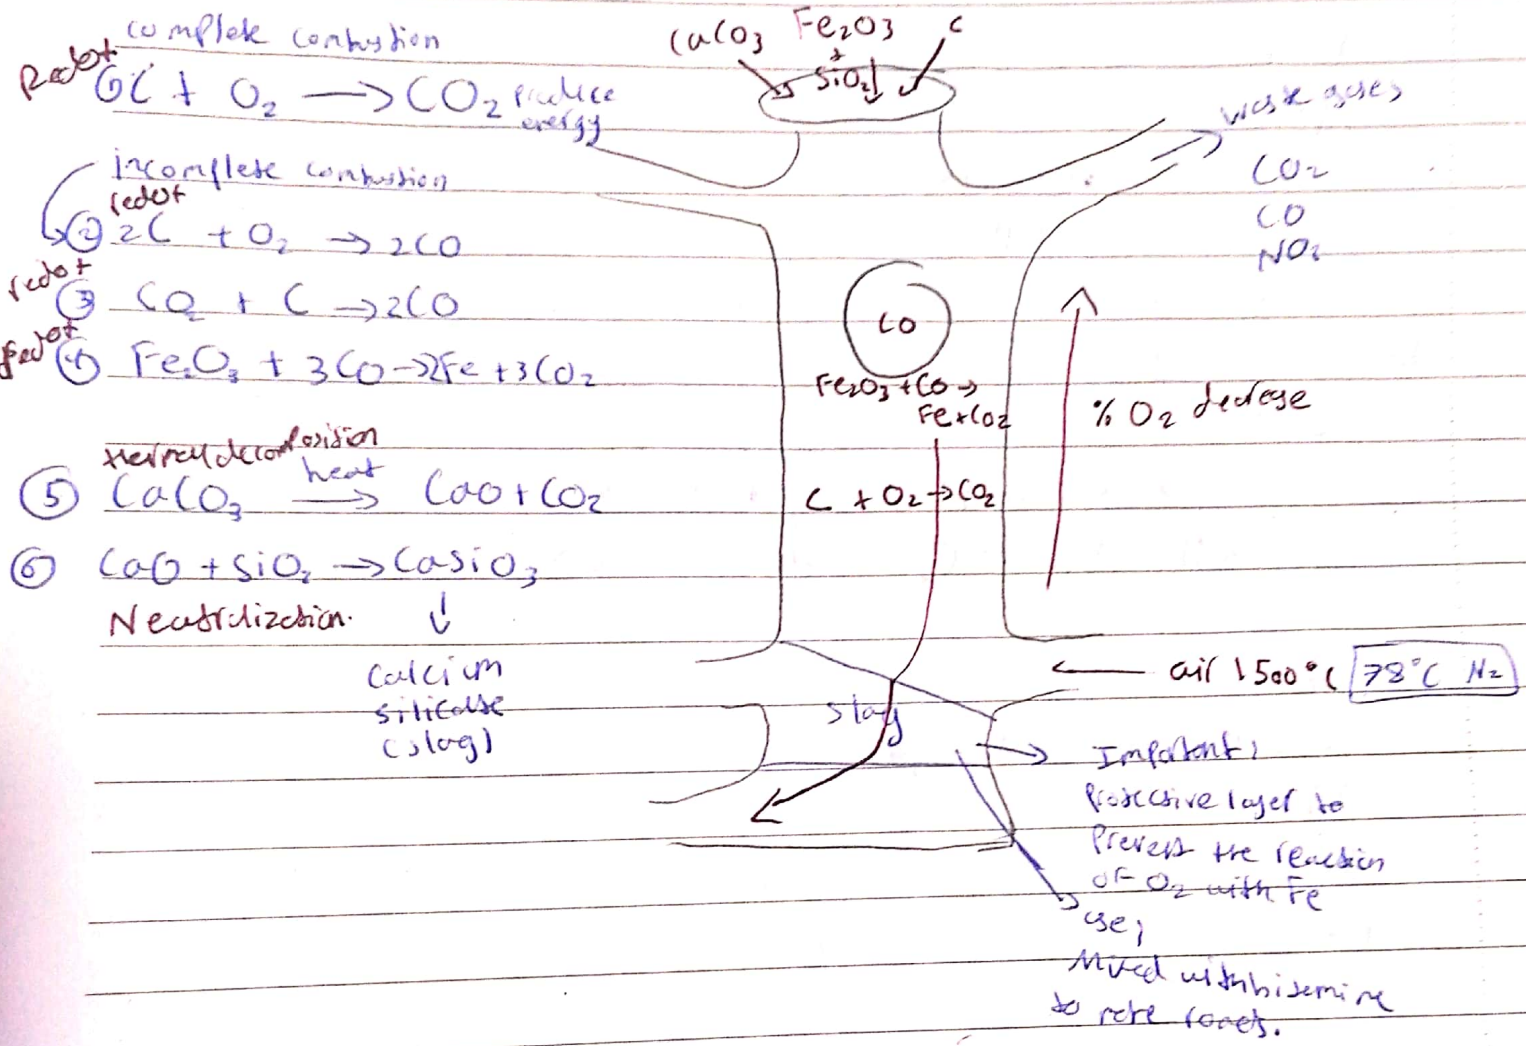 complete combustion
Redox
① C + O₂ → CO₂ produce energy
incomplete combustion
redox
② 2C + O₂ → 2CO
redox
③ CO₂ + C → 2CO
redox
④ Fe₂O₃ + 3CO → 2Fe + 3CO₂
thermal decomposition
heat
⑤ CaCO₃ → CaO + CO₂
⑥ CaO + SiO₂ → CaSiO₃
Neutralization.
↓
Calcium
silicate
(slag)
CaCO₃ Fe₂O₃ C
+
SiO₂
waste gases
CO₂
CO
NO₂
CO
Fe₂O₃ + CO →
Fe + CO₂
C + O₂ → CO₂
% O₂ decrease
← air 1500°C 78°C N₂
slag
Important:
Protective layer to
Prevent the reaction
of O₂ with Fe
use;
Mixed with
to roads.